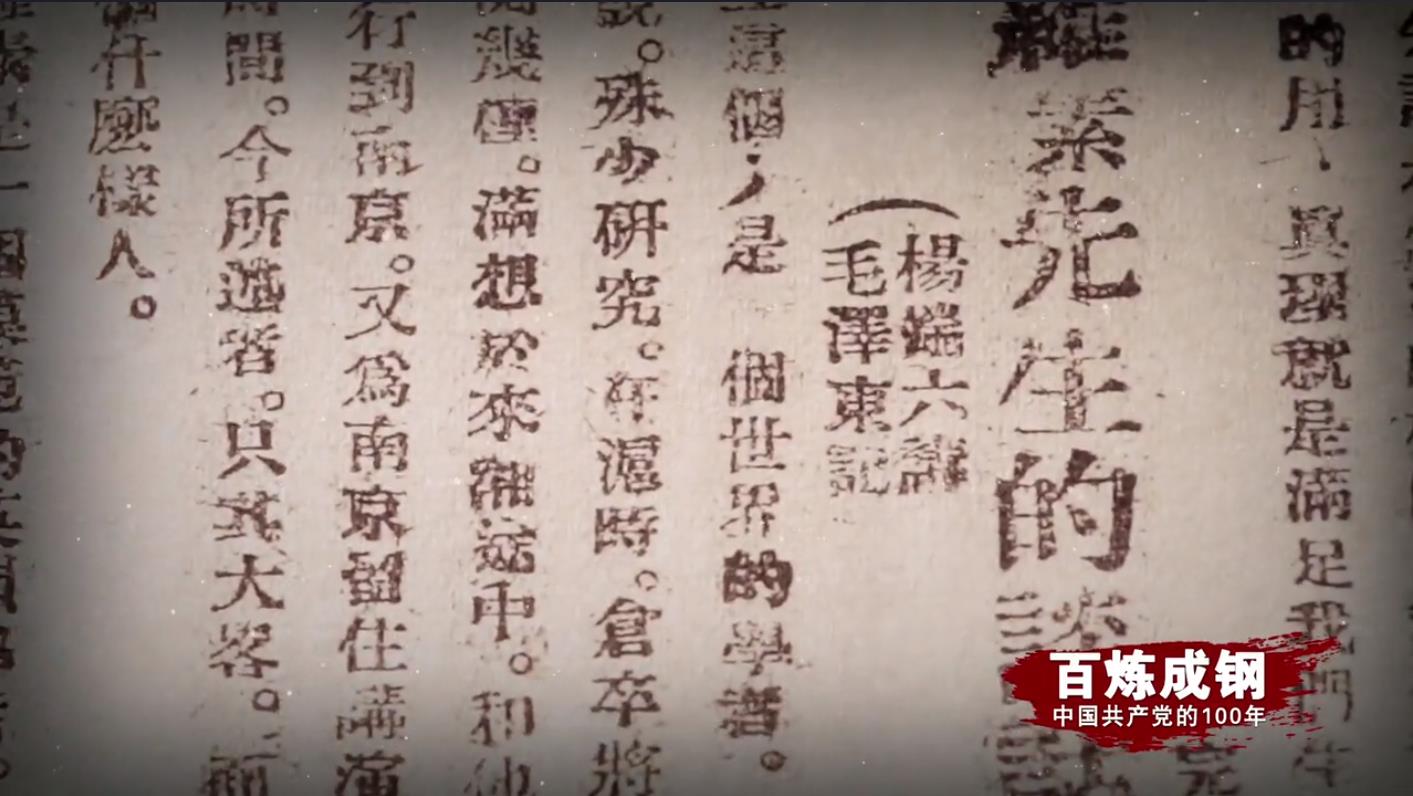 的用、真理就是滿足我們
素先生的談話
（楊端六講
毛澤東記
個人，是 個世界的學者。
說。殊少研究。在滬時。倉卒將
滿想於來湘途中。和他
行到南京。又爲南京留住講演
間。今所述者。只其大畧。
個什麼樣人。
百炼成钢
中国共产党的100年